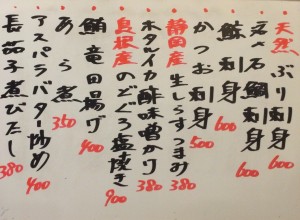 天然 ぶり刺身 600
天然 石鯛刺身 600
鯨刺身 600
かつお刺身 500
静岡産 生しらすつまみ 380
ホタルイカ酢味噌かけ 380
島根産 のどぐろ塩焼き 900
鮪竜田揚げ 400
あら煮 350
アスパラバター炒め 400
長茄子煮びたし 380